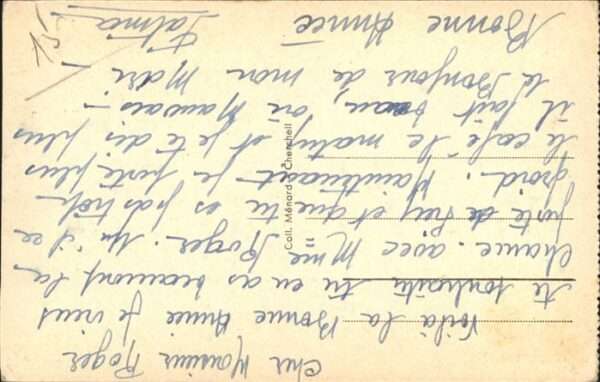 Cher Monsieur Roger
Voilà la Bonne Année je viens
te souhaité tu en as beaucoup la
chance. avec Mme Roger.
et que tu es pas trop
froid. Maintenant je plus
le café le matin, et je te dis plus
il fait beau, où Mauvais -
le Bonjour de mon Mari -
Bonne Année
Fatma
Coll. Ménard - Cherchell